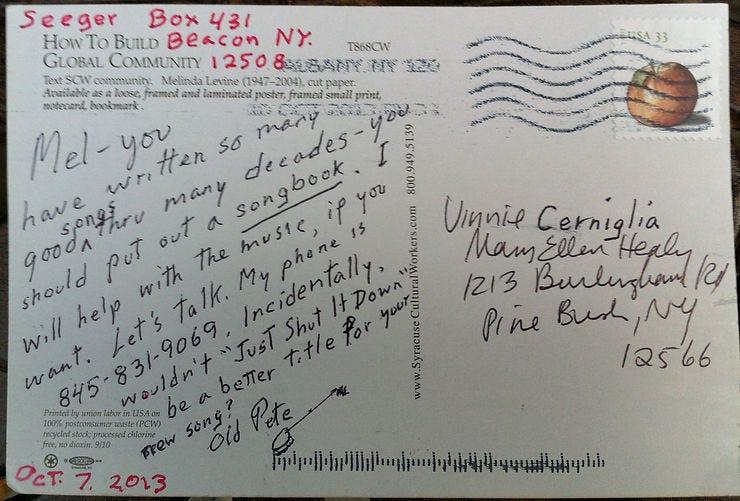 Seeger Box 431
Beacon NY.
12508
HOW TO BUILD
GLOBAL COMMUNITY
T868CW
ALBANY NY 120
Text SCW community. Melinda Levine (1947–2004), cut paper.
Available as a loose, framed and laminated poster, framed small print,
notecard, bookmark.
USA 33
Mel - you
have written so many
good songs thru many decades - you
should put out a songbook. I
will help with the music, if you
want. Let's talk. My phone is
845-831-9069. Incidentally,
wouldn't "Just Shut It Down"
be a better title for your
new song?
Old Pete
www.SyracuseCulturalWorkers.com 800.949.5139
Vinnie Cerniglia
Mary Ellen Healy
1213 Burlingham Rd
Pine Bush, NY
12566
Printed by union labor in USA on
100% postconsumer waste (PCW)
recycled stock; processed chlorine
free, no dioxin. 9/10
Oct. 7. 2013